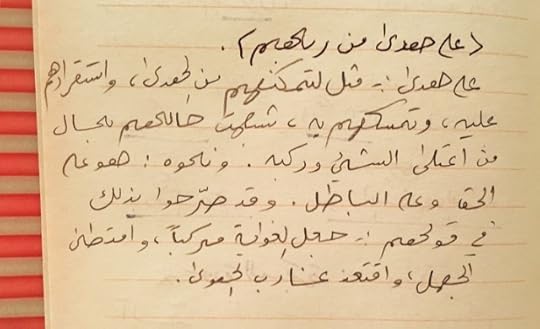 (على هدى من ربهم).
على هدى :- مثل لتمكنهم من الهدى، واستقرارهم
عليه، وتمسكهم به، شبهت حالهم بحال
من اعتلى الشيئ وركبه. ونحوه: هو على
الحق وعلى الباطل. وقد صرّحوا بذلك
في قولهم :- جعل الغواية مركباً، وامتطى
الجهل، واقتعد غارب الهوى.